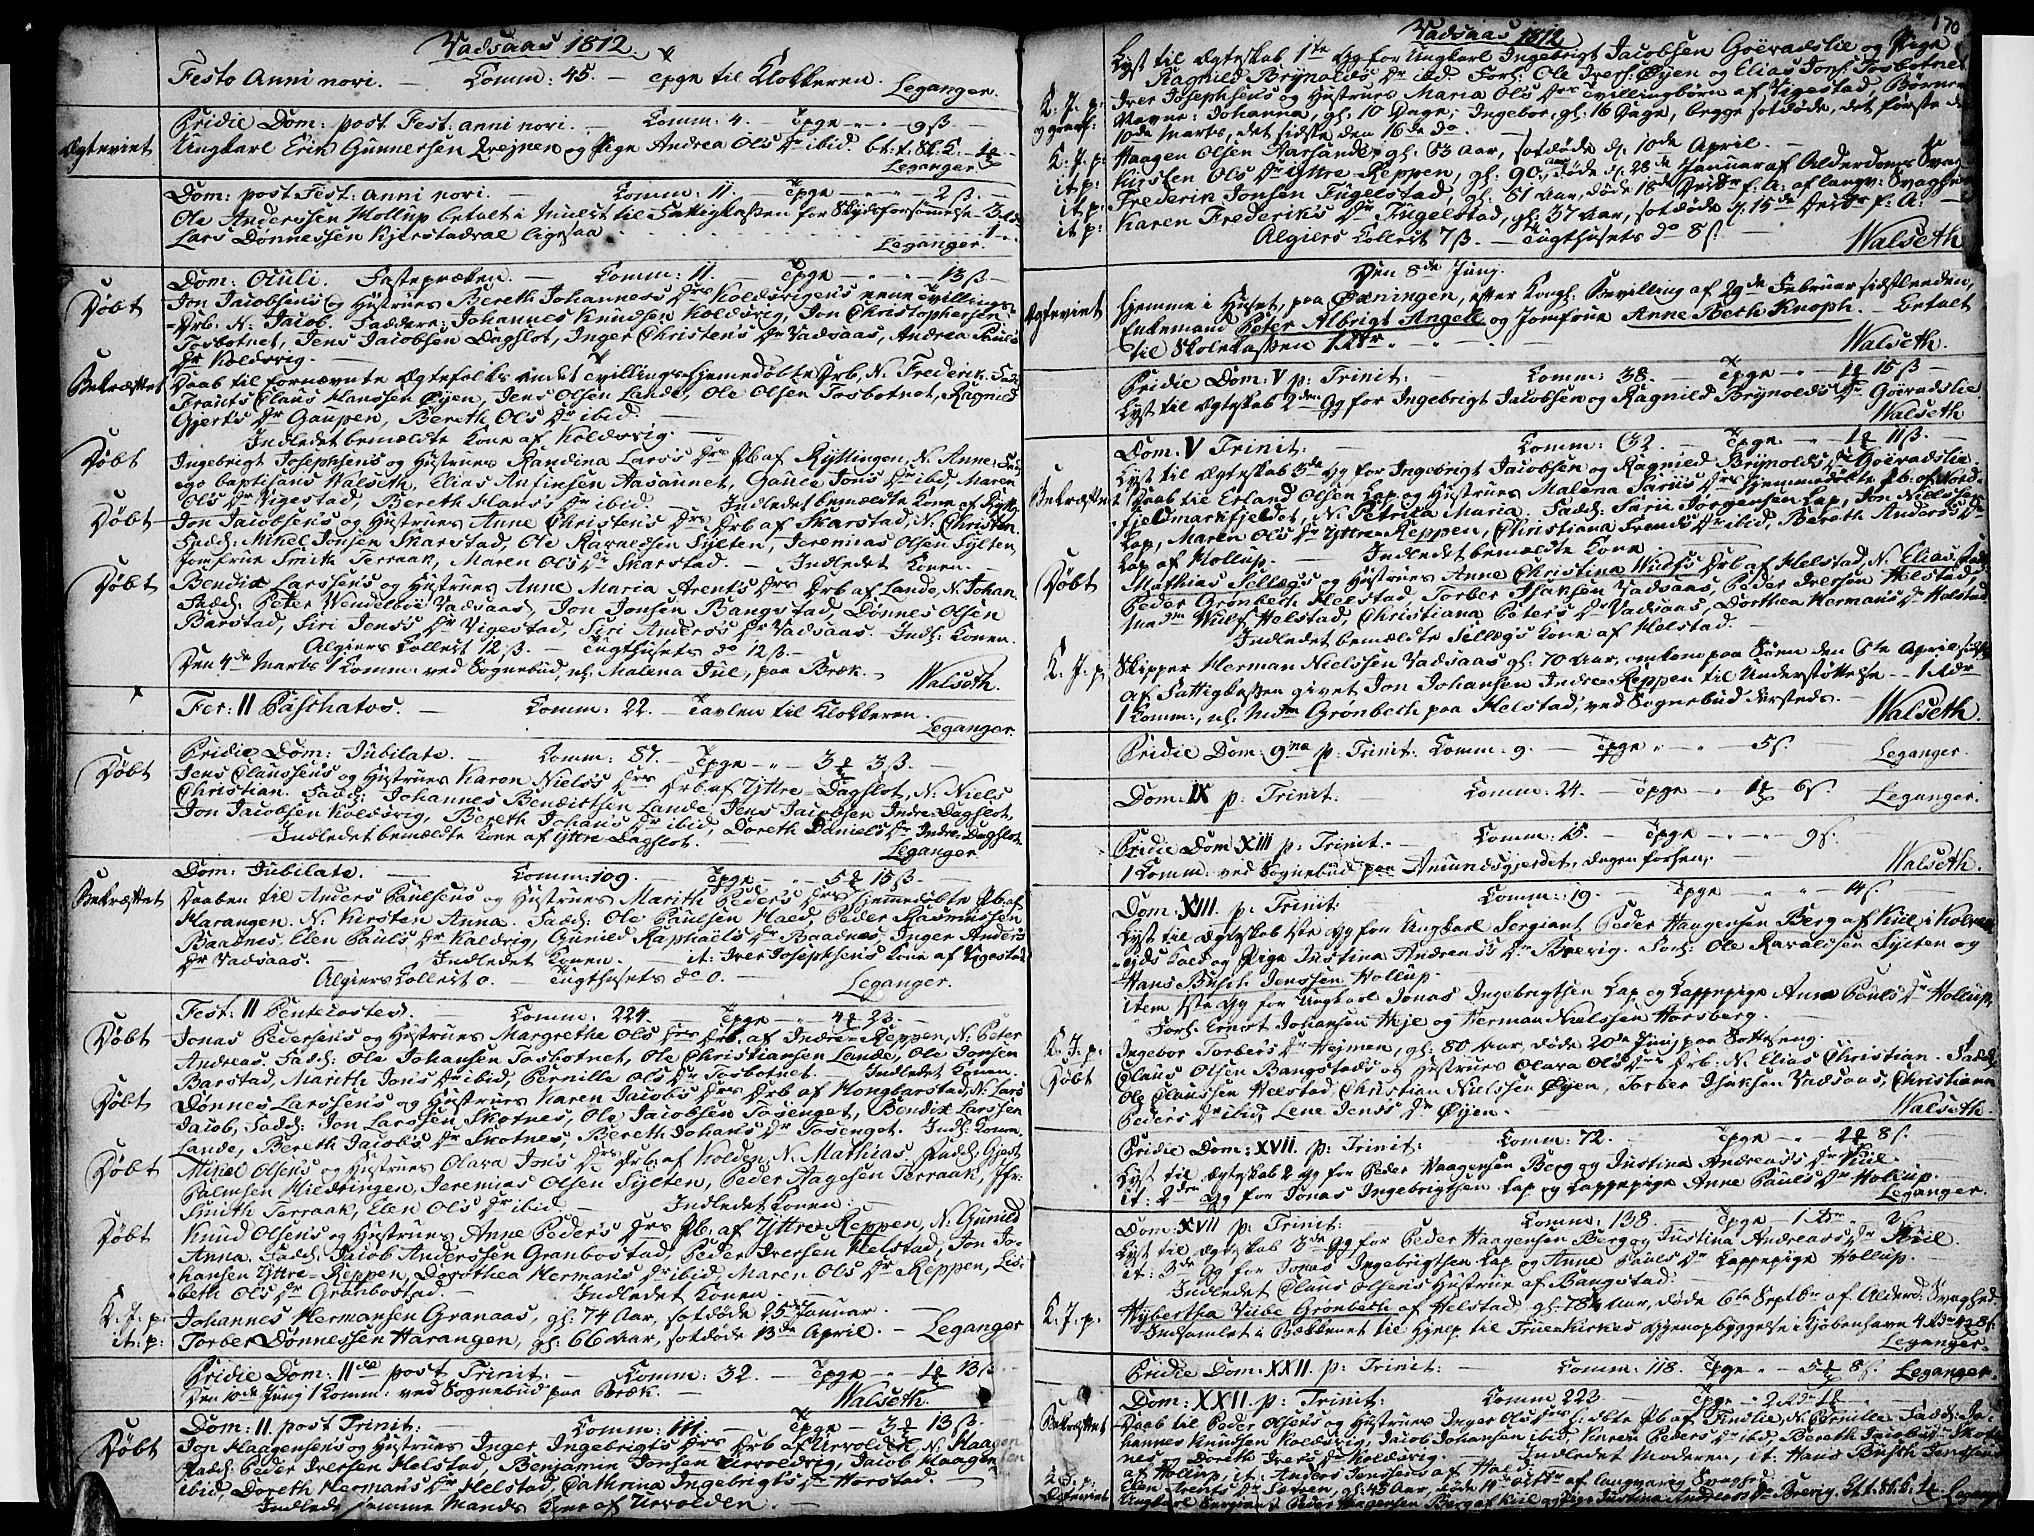 Vadsaas 1812.
Festo Anni nori. — Comm: 45. — Tpge til Klokkeren. Leganger.
Pridie Dom: post Fest: anni nori. — Comm: 4. — Tpge — 9 ß.
Ægteviet Ungkarl Erik Gunnersen Qvejnen og Pige Andrea Ols Dr ibid.
Leganger
Dom: post Fest: anni nori. Comm: 11. — Tpge — 2 ß.
Ole Anderssen Hollup betalt i Mulct til Fattigkassen for Skydsforsömmelse
Lars Dønnessen Kjerstadval ligesaa
Leganger.
Dom: Oculi. Fasteprækken. — Comm: 11. — Tpge — 13 ß
Døbt Jon Jacobsens og Hustrues Bereth Johanness Drs Koldsvigens eene Tvillings-
Drb. N. Jacob. Faddere: Johannes Knudsen Koldsvig, Jon Christophersen
Tosbotnet, Jens Jacobsen Dagslot, Inger Christens Dr Vadsaas, Andrea Pauls
Dr Koldsvig. —
Bekræftet Daab til fornævnte Ægtefolks andet Tvillings hjemedøbte Drb, N. Frederik. Fadd:
Frants Claus Hanssen Øyen, Jens Olsen Lande, Ole Olsen Tosbotnet, Ragnild
Gjerts Dr Gaupen, Bereth Ols Dr ibid. —
Indledet bemældte Kone af Koldsvig. —
Døbt Ingebrigt Josephsens og Hustrues Randina Lars's Drs Pb af Kyttingen, N. Anne: Fadd:
ego baptisans Walseth, Elias Anfinsen Aasannet, Gauce Jons Dr ibid Maren
Ols Dr Vigestad, Bereth Hans's Dr ibid. Indledet bemældte Kone af
Døbt Jon Jacobsens og Hustrues Anne Christens Drs Drb af Skarstad, N. Christen.
Fadd: Mikel Jonsen Skarstad, Ole Ravaldsen Sylten, Jeremias Olsen Sylten,
Jomfrue Smith Terraak, Maren Ols Dr Skarstad. — Indledet Konen. —
Døbt Bendix Larssens og Hustrues Anne Maria Arents Drs Drb af Lande, N. Johan.
Fadd: Peter Wendelboe Vadsaas, Jon Jonsen Bangstad, Dønnes Olsen
Barstad, Siri Jens's Dr Vigestad, Siri Anders's Dr Vadsaas. Indl: Konen.
Algiers Collect 12 ß. — Tugthusets do 12 ß. —
Den 4de Marts 1 Komm: ved Sognebud, nl. Malena Jul, paa Bræk. — Walseth.
Fer: II Paschatos. — Comm: 22. — Tavlen til Klokkeren.
Leganger
Pridie Dom: Jubilate. — Comm: 87. — Tpge — 3 3 ß.
Døbt Jens Claussens og Hustrues Karen Niels's Drs Drb. af Yttre-Dagslot, N. Niels
Christian. Fadd: Johannes Bendictsen Lande, Jens Jacobsen Indre-Dagslot,
Jon Jacobsen Koldsvig, Bereth Johans Dr ibid, Doreth Daniels Dr Indre-Dagslot,
Indledet bemældte Kone af Yttre-Dagslot. —
Leganger
Dom: Jubilate. — Comm: 109. — Tpge — 5 15 ß —
Bekræftet Daaben til Anders Paulsens og Hustrues Marith Peders Drs hjemedøbte Pb. af
Harangen. N. Kirsten Anna. Fadd: Ole Paulsen Hald, Peder Rasmussen
Baadnes, Elen Pauls Dr Kaldvig, Gunild Raphaels Dr Baadnes, Inger Anders
Dr Vadsaas. Indledet Konen. — it: Iver Josephsens Kone af Vigestad
Algiers Collect 0. — Tugthusets do 0. Leganger.
Fest: II Pentecostes. — Comm: 224. — Tpge — 4 23. —
Døbt Jonas Pedersens og Hustrues Margrethe Ols Drs Drb. af Indre-Reppen, N. Peter
Andreas. Fadd: Ole Johansen Tosbotnet, Ole Christiansen Lande, Ole Jonsen
Barstad, Marith Jons Dr ibid, Pernille Ols Dr Tosbotnet. — Indledet Konen. —
Døbt Dønnes Larssens og Hustrues Karen Jacobs Drs Drb af Hongbarstad, N. Lars
Jacob, Fadd: Jon Larssen Skotnes, Ole Jacobsen Tosenget, Bendix Larssen
Lande, Bereth Jacobs Dr Skotnes, Bereth Johans Dr Tosenget. Indl: Konen
Døbt Mikel Olsens og Hustrues Olara Jons Drs Drb: af Holden, N. Mathias, Fadd: Gjert
Palmsen Hildringen, Jeremias Olsen Sylten, Peder Aagesen Terraak, Jfr:
Smith Terraak, Elen Ols Dr ibid. — Indledet Konen. —
Døbt Knud Olsens og Hustrues Anne Peders Drs Pb: af Yttre-Reppen, N: Gunild
Anna. Fadd: Jacob Anderssen Granbostad, Peder Iversen Helstad, Jon Jo-
hansen Yttre-Reppen, Dorothea Hermans Dr ibid, Maren Ols Dr Reppen, Lis-
beth Ols Dr Granbostad. — Indledet Konen. —
K. J. p. Johannes Hermansen Granaas, gl: 74 Aar, sotdøde 25de Januar.
it: p: Torber Dønnessen Harangen, gl: 66 Aar, sotdøde 13de April. — Leganger
Pridie Dom: II post Trinit: — Comm: 32. — Tpge — 13 ß
Den 10de Juny 1 Komm: ved Sognebud paa Bræk. — Walseth
Dom: II. post Trinit: — Comm: 111. — Tpge — 3 13 ß. —
Døbt Jon Haagensens og Hustrues Inger Ingebrigts Drs Drb af Urvolden, N. Haagen
Fadd: Peder Iversen Helstad, Benjamin Jonsen Urvoldvig, Jacob Haagensen
ibid, Doreth Hermans Dr Helstad, Cathrina Ingebrigts Dr Horstad. —
Indledt samme Mands Kone af Urvolden. —
170
Vadsaas 1812
Lyst til Ægteskab 1ste Gg for Ungkarl Ingebrigt Jacobsen Goëvadslie og Pige
Ragnild Brynolds Dr ibid Forl: Ole Ivers: Øyen og Elias Jons: Tosbotnet
K. J. p. Iver Josephsens og Hustrues Maria Ols Drs Tvillingbørn af Vigestad, Børnenes
Navne: Johanna, gl. 10 Dage; Ingebor, gl. 16 Dage, begge sotdøde, det første den
10de Marts, det sidste den 16de do. —
K. J. p. Haagen Olsen Aarsande, gl: 53 Aar, sotdøde d. 10de April. —
it p: Kirsten Ols Dr Yttre-Reppen, gl: 90 Aar, døde d. 28de Januar af Alderdoms Svag
it p: Frederik Jonsen Fugelstad, gl: 81 Aar, døde 18de f: A: af langv: Svaghed
it p: Karen Frederiks Dr Fugelstad, gl: 37 Aar, sotdøde d. 15de f: A: —
Algiers Collect 7 ß. — Tugthusets do 8 ß. Walseth
Den 8de Juny.
Ægteviet Hjemme i Huset, paa Øxningen, efter Kongl. Bevilling af 29de Februar sidstleeden,
Enkemand Peter Albrigt Angell og Jomfrue Anne Beth Knoph. — Betalt
til Skolekassen 1 Rdr
Walseth.
Pridie Dom: V p: Trinit: — Comm: 38. — Tpge — 1 15 ß —
Lyst til Ægteskab 2den Gg for Ingebrigt Jacobsen og Ragnild Brynolds Dr Goëvadslie.
Walseth
Dom: V Trinit: Comm: 132 — Tpge — 1 11 ß. —
Lyst til Ægteskab 3de Gg for Ingebrigt Jacobsen og Ragnild Brynolds Dr Goëvadslie.
Bekræftet Daab til Erland Olsen Lap og Hustrues Malena Farius Drs hjemmedøbte Pb. af Nord-
fjeldmarkfjeldet, N. Petrica Maria. Fadd: Farii Jørgensen Lap, Jon Nielssen
Lap, Maren Ols Dr Yttre-Reppen, Christiana Svends Dr ibid, Bereth Anders's Dr
Lap af Hollup. — Indledet bemældte Kone —
Døbt Mathias Sellægs og Hustrues Anne Christina Wulfs Drb af Helstad, N. Elias. Fadd:
Peder Grønbech Helstad Torber Isaksen Vadsaas, Peder Iversen Helstad,
Madm Wulf Helstad, Christiana Peters Dr Vadsaas, Dorthea Hermans Dr Helstad.
Indledet bemældte Sellæg's Kone af Helstad. —
K. J. p. Skipper Herman Nielssen Vadsaas gl: 70 Aar, omkom paa Søen den 6te April
af Fattigkassen givet Jon Johansen Indre-Reppen til Understøttelse — 1 Rdr
1 Komm:, nl. Mdm Grønbech paa Helstad, ved Sognebud dersteds. Walseth.
Pridie Dom: 9na p: Trinit. Comm: 9. Tpge — 5 ß. Leganger.
Dom: IX p: Trinit. Comm: 24. — Tpge — 1 6 ß. Leganger.
Pridie Dom XIII p: Trinit. — Comm: 15. Tpge — 9 ß.
1 Komm: ved Sognebud paa Amundsgjerdet, dagen forhen. — Walseth.
Dom: XIII. p: Trinit: Comm: 19. — Tpge — 14 ß.
Lyst til Ægteskab 1ste Gg for Ungkarl Sergiant Peder Haagensen Berg af Kiil i Kolvereid
Gield og Pige Justina Andreas's Dr Brevig. Forl: Ole Ravaldsen Sylten og
Hans Busch Jenssen Hollup. —
item 1ste Gg for Ungkarl Jonas Ingebrigtsen Lap og Lappepige Anna Pauls Dr Hollup.
Forl: Ernst Johansen Heje og Herman Nielssen Horsberg. —
K. J. p: Ingebor Torber's Dr Hejmen, gl: 80 Aar, døde 20de Juny paa Sotteseng.
Døbt Claus Olsen Bangstads og Hustrues Olara Ols Drs Drb. N. Elias Christian. Fadd:
Ole Claussen Helstad, Christian Nielssen Øyen, Torber Isaksen Vadsaas, Christiana
Peders Dr ibid, Lene Jens's Dr Øyen. — Walseth.
Pridie Dom: XVII. p: Trinit: Comm: 72. — Tpge — 2 8 ß.
Lyst til Ægteskab 2 Gg for Peder Haagensen Berg og Justina Andreas's Dr Kiil. —
it: 2den Gg for Jonas Ingebrigtsen Lap og Lappepige Anne Pauls Dr Hollup. —
Leganger.
Dom: XVII p: Trinit: — Comm: 138. Tpge —
Lyst til Ægteskab 3de Gg for Peder Haagensen Berg og Justina Andreas's Dr Kiil.
it: 3de Gg for Jonas Ingebrigtsen Lap og Anne Pauls Dr Lappepige Hollup.
Indledet Claus Olsens Hustrue af Bangstad. —
K. J. p. Hybertha Vibe Grønbech af Helstad gl: 78 Aar, døde 6te Septbr af Alderd: Svaghed.
Indsamlet i Bækkenet til Hjelp til Frue-Kirkes Gjenopbyggelse i Kjøbenhavn
Leganger.
Pridie Dom: XXII. p: Trinit: — Comm: 118. Tpge — 5 8 ß. Leganger.
Dom: XXII. p: Trinit: Comm: 222 Tpge —
Bekræftet Daab til Peder Olsens og Hustrues Inger Ols Drs Pb af Tindlie, N. Pernille Fadd: Jo-
hannes Knudsen Koldsvig, Jacob Johansen ibid Karen Peders Dr ibid Bereth Jacobs Dr Skot-
nes og Doreth Ivers Dr Koldsvig. Indledet Moderen, it: Hans Busch Jenssens
af Hollup, it: Anders Jonssens af
K. J. p. Elen Arents Dr, gl: 45 Aar, døde af langvarig Svaghed
Ægteviet Ungkarl Sergiant Peder Haagensen Berg af Kiil og Pige Justina Andreas's Dr Brevig.